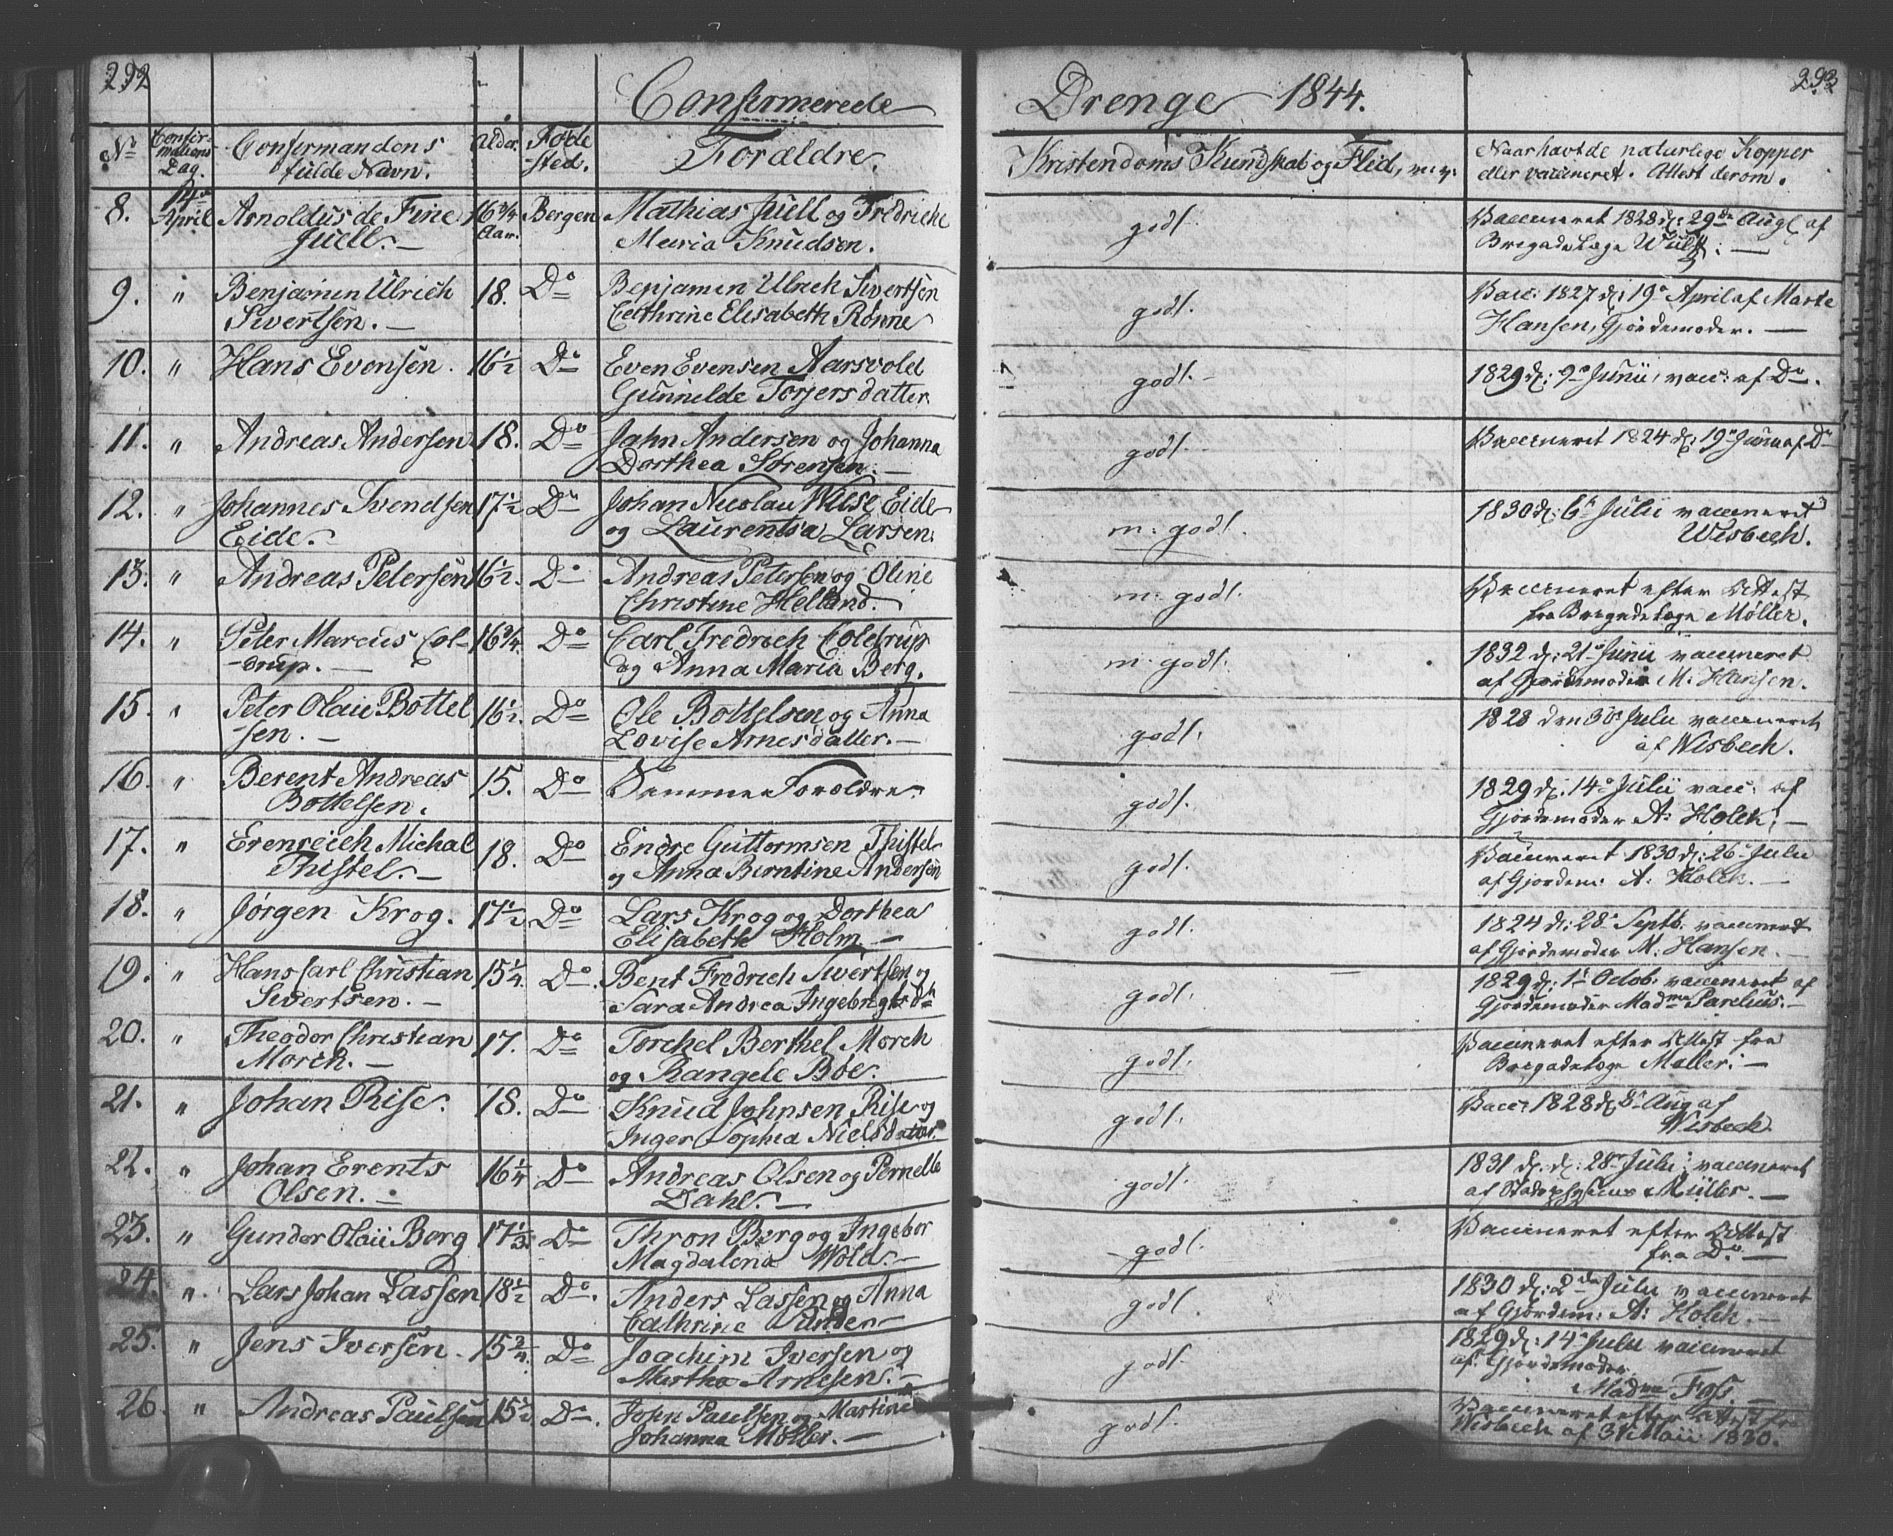 292
293
Confirmerede Drenge 1844.
No Confirmations Dag. Confirmandens fulde Navn. Alder. Føde sted. Forældre. Kristendoms Kundskab og Flid, m. v. Naar havt de naturlige Kopper eller vaccineret. Attest derom.
8. 14de April Arnoldus de Fine 16 3/4 Aar. Bergen Mathias Juell og Fredricke godt. Vaccineret 1828 d: 29de Augt af
Juell. Maria Knudsen. Brigadelæge Wulff.
9. " Benjamin Ulrich 18. Do Benjamen Ulrich Sivertsen godt. Vacc: 1827 d: 19de April af Marte
Sivertsen. Cathrine Elisabeth Rønne Hansen, Gjordemoder.
10. " Hans Evensen. 16 1/2 Do Even Evensen Aarsvold godt. 1829 d: 9de Junii, vacc: af Do.
Gunnilde Torjersdatter
11. " Andreas Andersen 18. Do Jahn Andersen og Johanna godt. Vaccineret 1824 d: 19de Juni af Do
Dorthea Sørensen.
12. " Johannes Svendsen 17 1/2 Do Johan Nicolau Wiese Eide m: godt. 1830 d: 6te Julii vaccineret
Eide. og Laurentsa Larsen. Wisbech.
13. " Andreas Petersen 16 1/2. Do Andreas Petersen og Oline m: godt. Vaccineret efter Attest
Christine Helland. fra Brigadelæge Møller.
14. " Peter Marcus Col- 16 3/4. Do Carl Fredrich Coldrup m: godt. 1832 d: 21de Junii vaccineret
-drup. og Anna Maria Berg. af Gjordemoder M: Hansen.
15. " Peter Olaii Bottel 16 1/2. Do Ole Bottelsen og Anna godt. 1828 den 30te Julii vaccineret
-sen. Lovise Arnesdatter. af Wisbech.
16. " Berent Andreas 15. Do Samme Forældre. godt. 1829 d: 14de Julii vacc: af
Bottelsen. Gjordemoder A: Holck.
17. " Erenreich Michal 18. Do Endre Guttormsen Thistel godt. Vaccineret 1830 d: 26de Julii
Thistel. og Anna Berntine Andersen af Gjordem: A: Holck.
18. " Jørgen Krog. 17 1/2 Do Lars Krog og Dorthea godt. 1824 d: 28de Septb: vaccineret
Elisabeth Holm. af Gjordemoder M: Hansen.
19. " Hans Carl Christian 15 1/4. Do Bent Fredrich Sivertsen og godt. 1829 d: 1te Octob: vaccineret af
Sivertsen. Sara Andrea Ingebrigts Dtr Gjordemoder Madme Parelius.
20. " Theodor Christian 17. Do Torchel Berthel Morch godt. Vaccineret efter Attest fra
Morch. og Rangele Boe. Brigadelæge Møller.
21. " Johan Rise. 18. Do Knud Johnsen Rise og godt. Vacc: 1828 d: 8de Aug af
Inger Sophia Nielsdatter. Wisbech.
22. " Johan Erents 16 1/4 Do Andreas Olsen og Pernelle godt. 1831 d: d: 28de Julii vaccineret
Olsen. Dahl. af Stadsphysicus Müller.
23. " Gunder Olaii Berg 17 1/3. Do Thron Berg og Ingebor godt. Vaccineret efter Attest
Magdalena Wold. fra Do.
24. " Lars Johan Lassen 18 1/2 Do. Anders Lassen og Anna godt. 1830 d: 2de Julii vaccineret
Cathrine af Gjordem: A: Holck.
25. " Jens Iversen. 15 3/4. Do Joachim Iversen og godt. 1829 d: 14de Julii vaccineret
Martha Arnesen. af Gjordemoder
Madme Foss
26. " Andreas Paulsen 15 1/2 Do. John Paulsen og Martine godt. Vaccineret efter Attest fra
Johanna Møller. Wisbech af 3 Maii 1830.